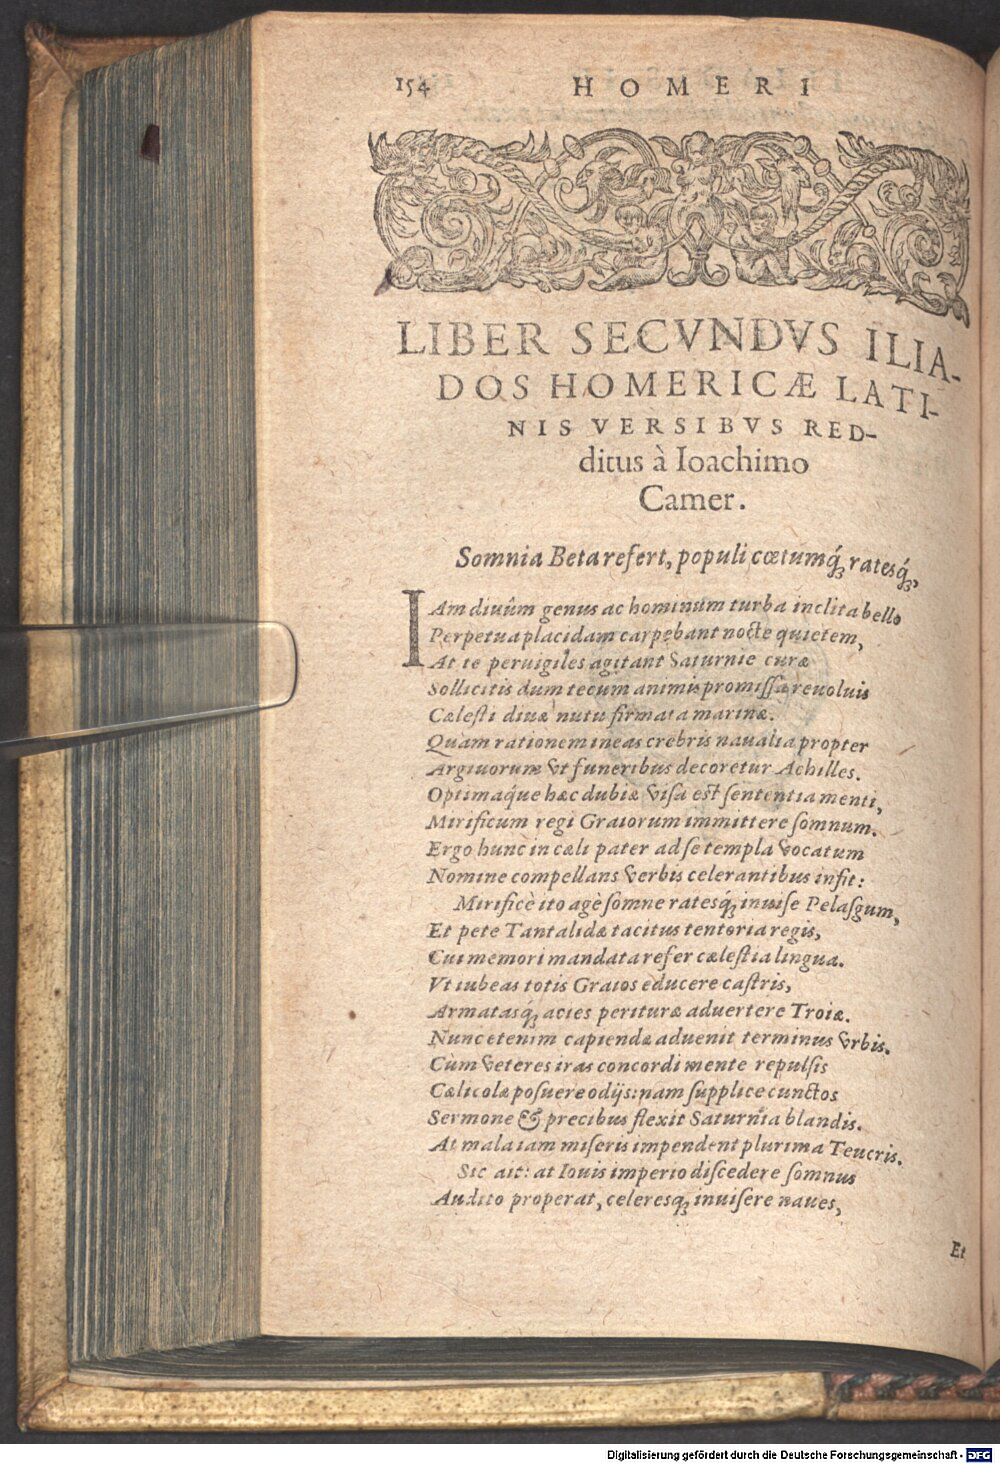 154 HOMERI
LIBER SECVNDVS ILIA-
DOS HOMERICÆ LATI-
NIS VERSIBVS RED-
ditus à Ioachimo
Camer.
Somnia Beta refert, populi cœtumq́; ratesq́;,
IAm diuûm genus ac hominum turba inclita bello
Perpetua placidam carpebant nocte quietem,
At te peruigiles agitant Saturnie curæ
Sollicitis dum tecum animis promissa reuoluis
Cælesti diuæ nutu firmata marinæ.
Quàm rationem ineas crebris naualia propter
Argiuorum vt funeribus decoretur Achilles.
Optimaq́ue hæc dubiæ visa est sententia menti,
Mirificum regi Graiorum immittere somnum.
Ergo hunc in cæli pater ad se templa vocatum
Nomine compellans verbis celerantibus infit:
Mirificè ito agè somne ratesq́; inuise Pelasgum,
Et pete Tantalidæ tacitus tentoria regis,
Cui memori mandata refer cælestia lingua.
Vt iubeas totis Graios educere castris,
Armatasq́; acies perituræ aduertere Troiæ.
Nunc etenim capiendæ aduenit terminus vrbis.
Cùm veteres iras concordi mente repulsis
Cælicolæ posuere odijs: nam supplice cunctos
Sermone & precibus flexit Saturnia blandis.
At mala iam miseris impendent plurima Teucris.
Sic ait: at Iouis imperio discedere somnus
Audito properat, celeresq́; inuisere naues,
Et
Digitalisierung gefördert durch die Deutsche Forschungsgemeinschaft - DFG